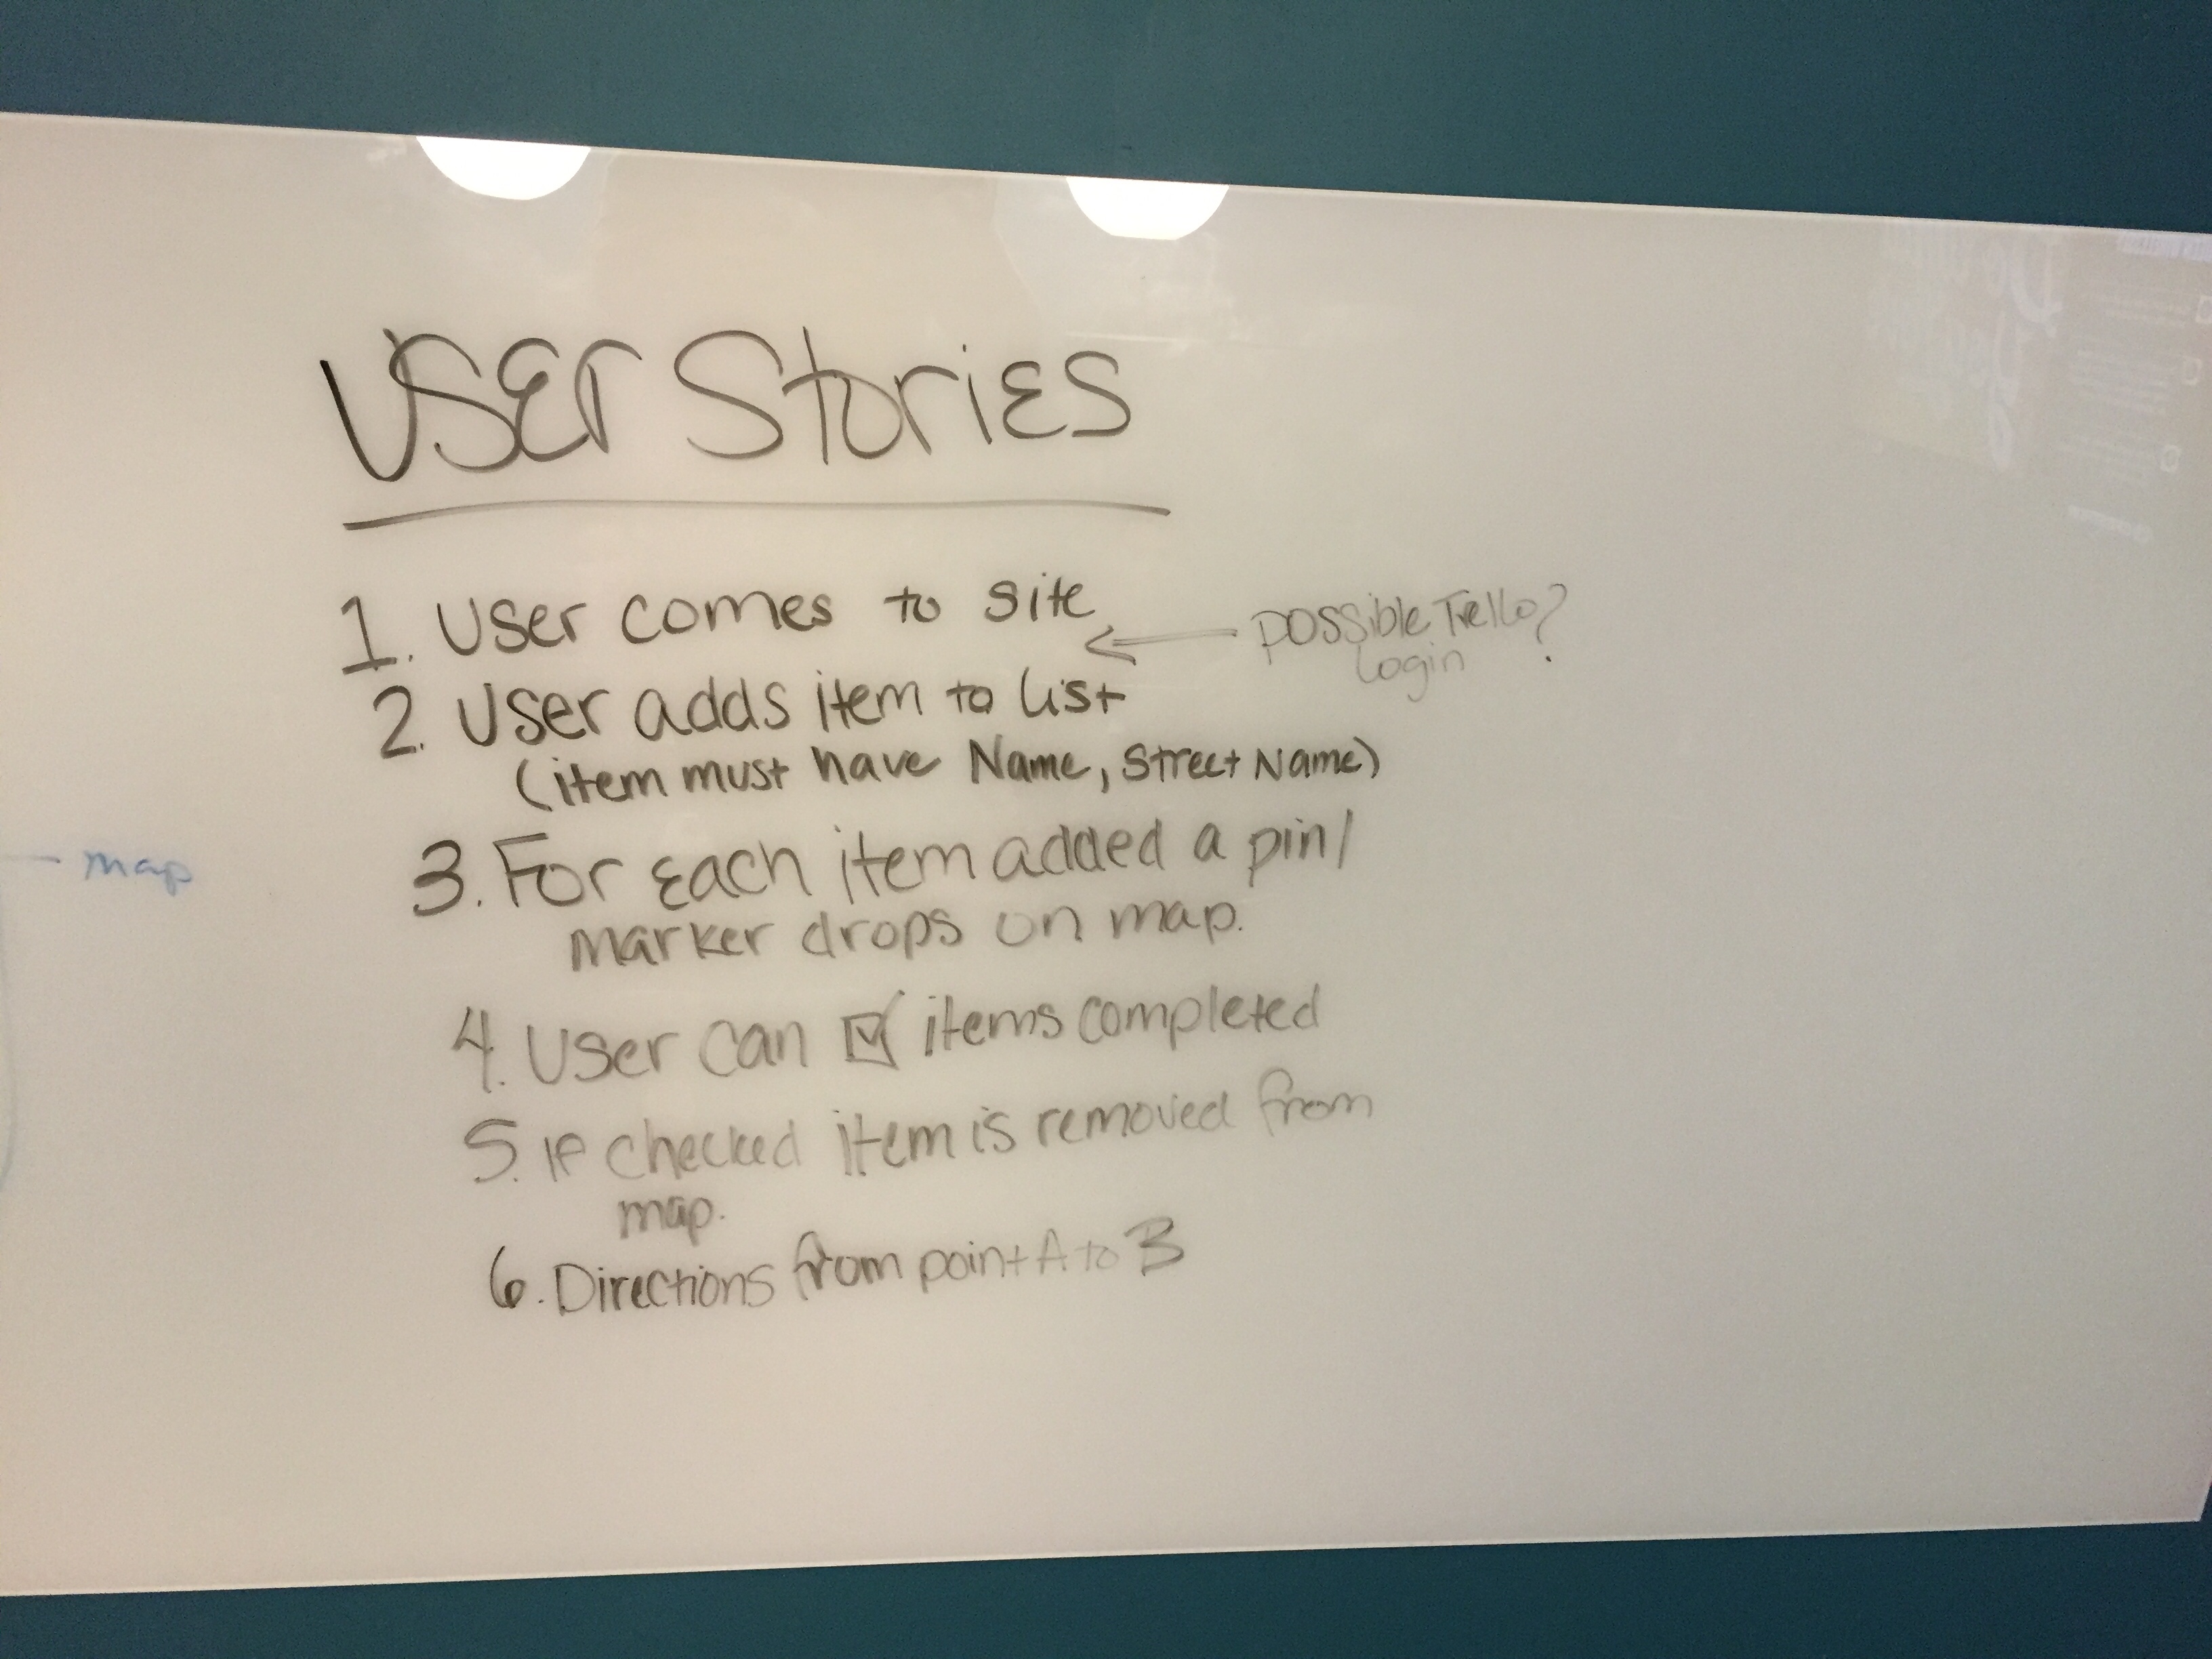 User Stories
1. User comes to site
← possible Trello?
login
2. User adds item to list
(item must have Name, Street Name)
3. For each item added a pin/
marker drops on map.
4. User can ☑ items completed
5. If checked item is removed from
map.
6. Directions from point A to B
map